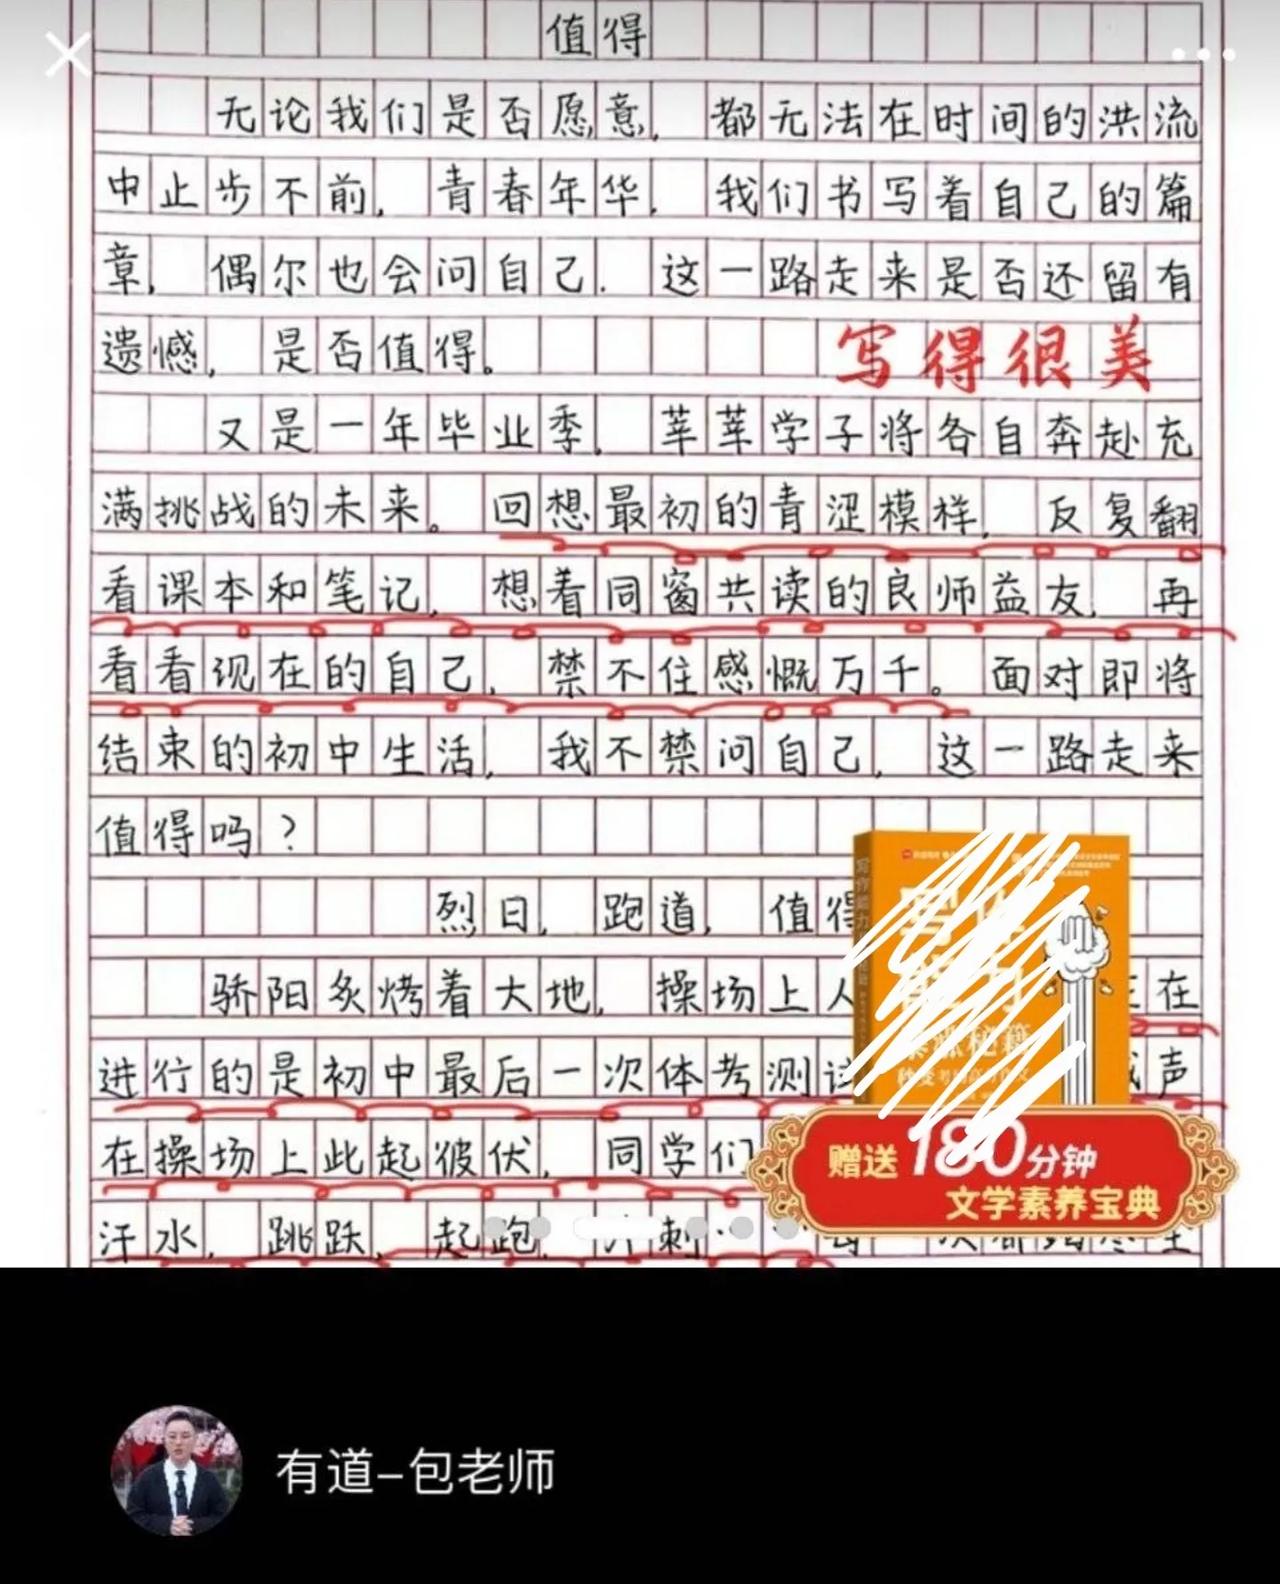 值得
无论我们是否愿意，都无法在时间的洪流
中止步不前，青春年华，我们书写着自己的篇
章，偶尔也会问自己，这一路走来是否还留有
遗憾，是否值得。
写得很美
又是一年毕业季，莘莘学子将各自奔赴充
满挑战的未来。回想最初的青涩模样，反复翻
看课本和笔记，想着同窗共读的良师益友，再
看看现在的自己，禁不住感慨万千。面对即将
结束的初中生活，我不禁问自己，这一路走来
值得吗？
烈日，跑道，值得
骄阳炙烤着大地，操场上人 在
进行的是初中最后一次体考测试 声
在操场上此起彼伏，同学们
汗水，跳跃，起跑，冲刺
赠送180分钟
文学素养宝典
有道-包老师